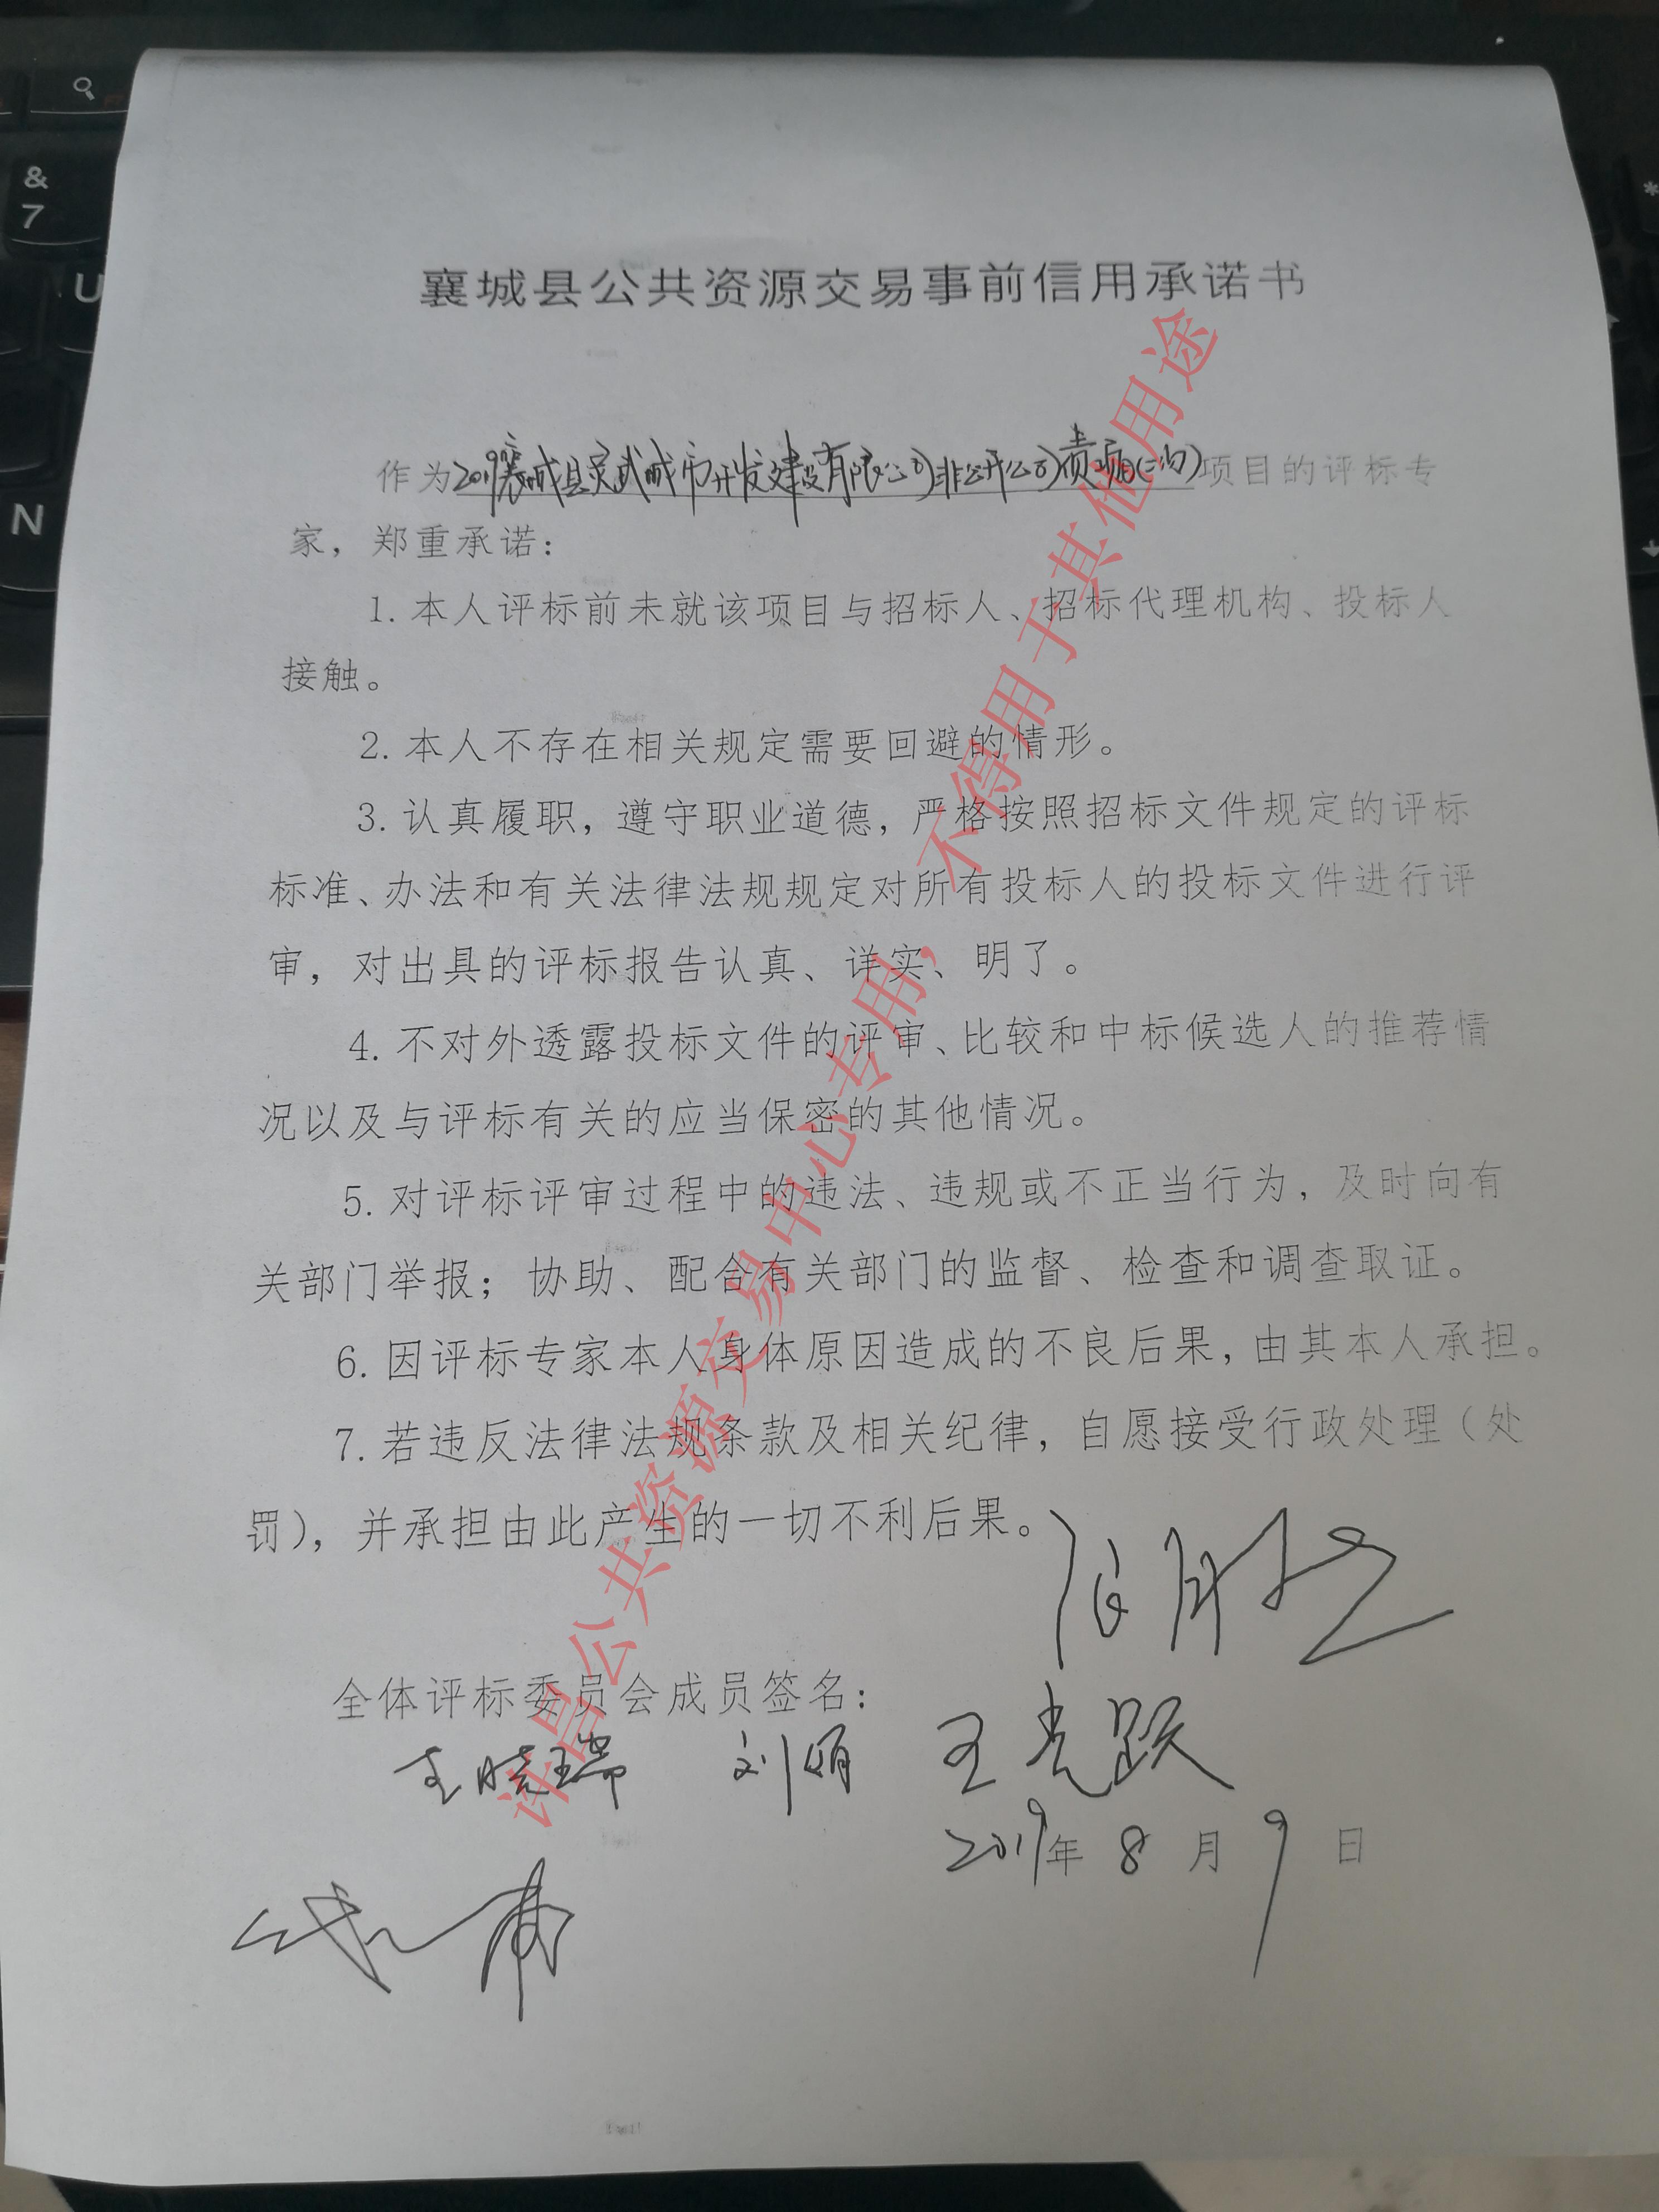 襄城县公共资源交易事前信用承诺书
作为2019襄城县灵武城市开发建设有限公司非公开公司债项(二次)项目的评标专
家，郑重承诺：
1.本人评标前未就该项目与招标人、招标代理机构、投标人
接触。
2.本人不存在相关规定需要回避的情形。
3.认真履职，遵守职业道德，严格按照招标文件规定的评标
标准、办法和有关法律法规规定对所有投标人的投标文件进行评
审，对出具的评标报告认真、详实、明了。
4.不对外透露投标文件的评审、比较和中标候选人的推荐情
况以及与评标有关的应当保密的其他情况。
5.对评标评审过程中的违法、违规或不正当行为，及时向有
关部门举报；协助、配合有关部门的监督、检查和调查取证。
6.因评标专家本人身体原因造成的不良后果，由其本人承担。
7.若违反法律法规条款及相关纪律，自愿接受行政处理（处
罚），并承担由此产生的一切不利后果。
全体评标委员会成员签名：
王晓瑞 刘娟 王光跃
2019年 8 月 9 日
许昌公共资源交易中心专用，不得用于其他用途
&
7
U
N